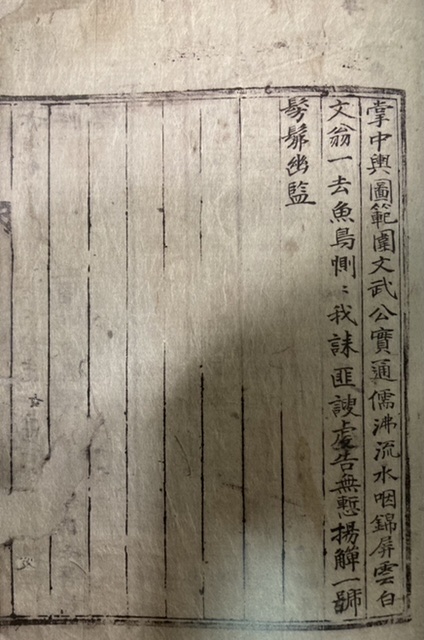 掌中輿圖範圍文武公實通儒沸流水咽錦屏雲白
文翁一去魚鳥惻〻我誄匪諛虔告無慙揚觶一號
髣髴幽監